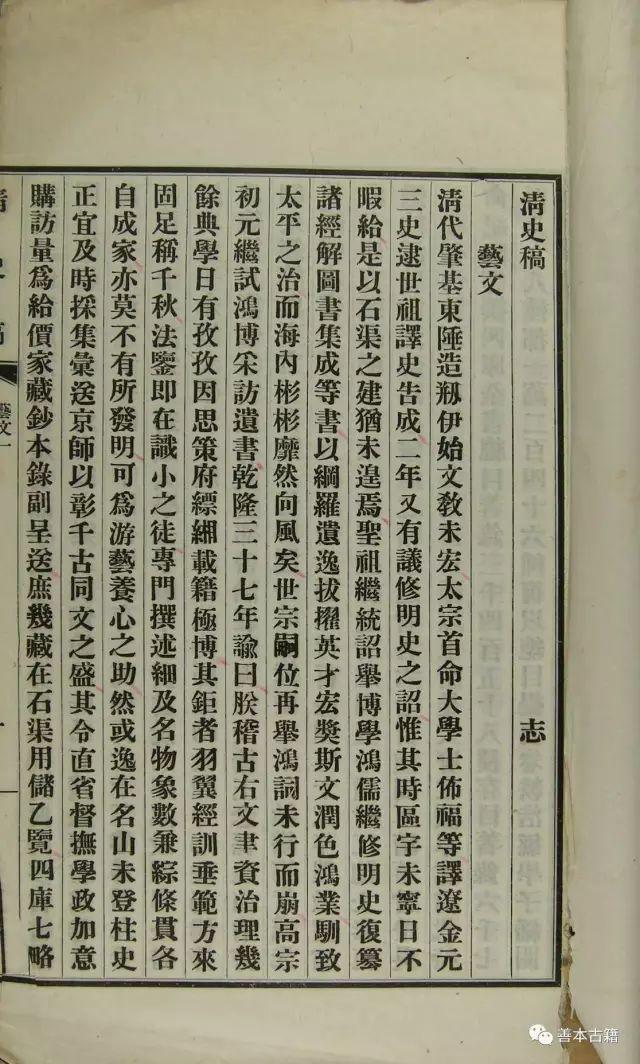 清史稿 志
藝文
清代肇基東陲造刱伊始文敎未宏太宗首命大學士佈福等譯遼金元
三史逮世祖譯史吿成二年又有議修明史之詔惟其時區宇未寧日不
暇給是以石渠之建猶未遑焉聖祖繼統詔舉博學鴻儒繼修明史復纂
諸經解圖書集成等書以綱羅遺逸拔擢英才宏獎斯文潤色鴻業馴致
太平之治而海內彬彬靡然向風矣世宗嗣位再舉鴻詞未行而崩高宗
初元繼試鴻博采訪遺書乾隆三十七年諭曰朕稽古右文聿資治理幾
餘典學日有孜孜因思策府縹緗載籍極博其鉅者羽翼經訓垂範方來
固足稱千秋法鑒即在識小之徒專門撰述細及名物象數兼綜條貫各
自成家亦莫不有所發明可爲游藝養心之助然或逸在名山未登柱史
正宜及時採集彙送京師以彰千古同文之盛其令直省督撫學政加意
購訪量爲給價家藏鈔本錄副呈送庶幾藏在石渠用儲乙覽四庫七略
清史稿 藝文一
善本古籍